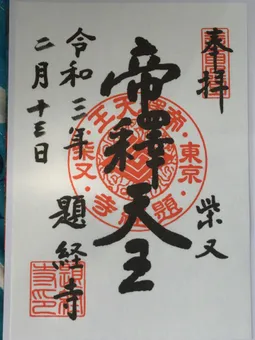 奉拝
柴又
帝釋天王
令和三年 題経寺
二月十三日
東京・柴又・題経寺